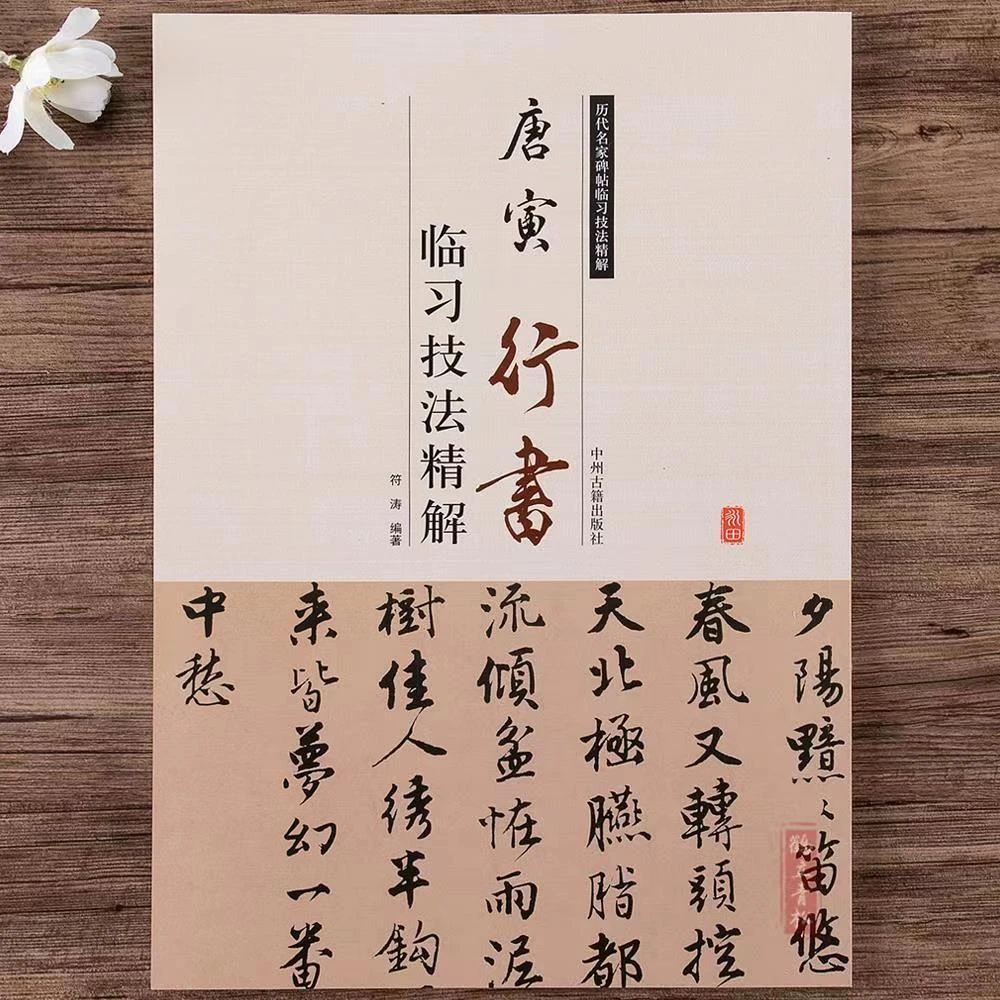 历代名家碑帖临习技法精解
唐寅行書
临习技法精解
符涛 编著
中州古籍出版社
夕陽黯〻笛悠
春風又轉頭控
天北極臙脂都
流傾盆怪雨泥
樹佳人绣半鈎
来皆夢幻一番
中愁